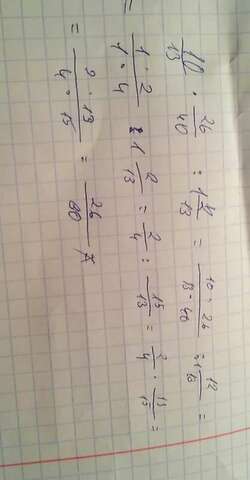 10/13 · 26/40 : 1 2/13 = 10·26/13·40 : 1 2/13 =
1·2/1·4 : 1 2/13 = 2/4 : 15/13 = 2/4 · 13/15 =
= 2·13/4·15 = 26/60